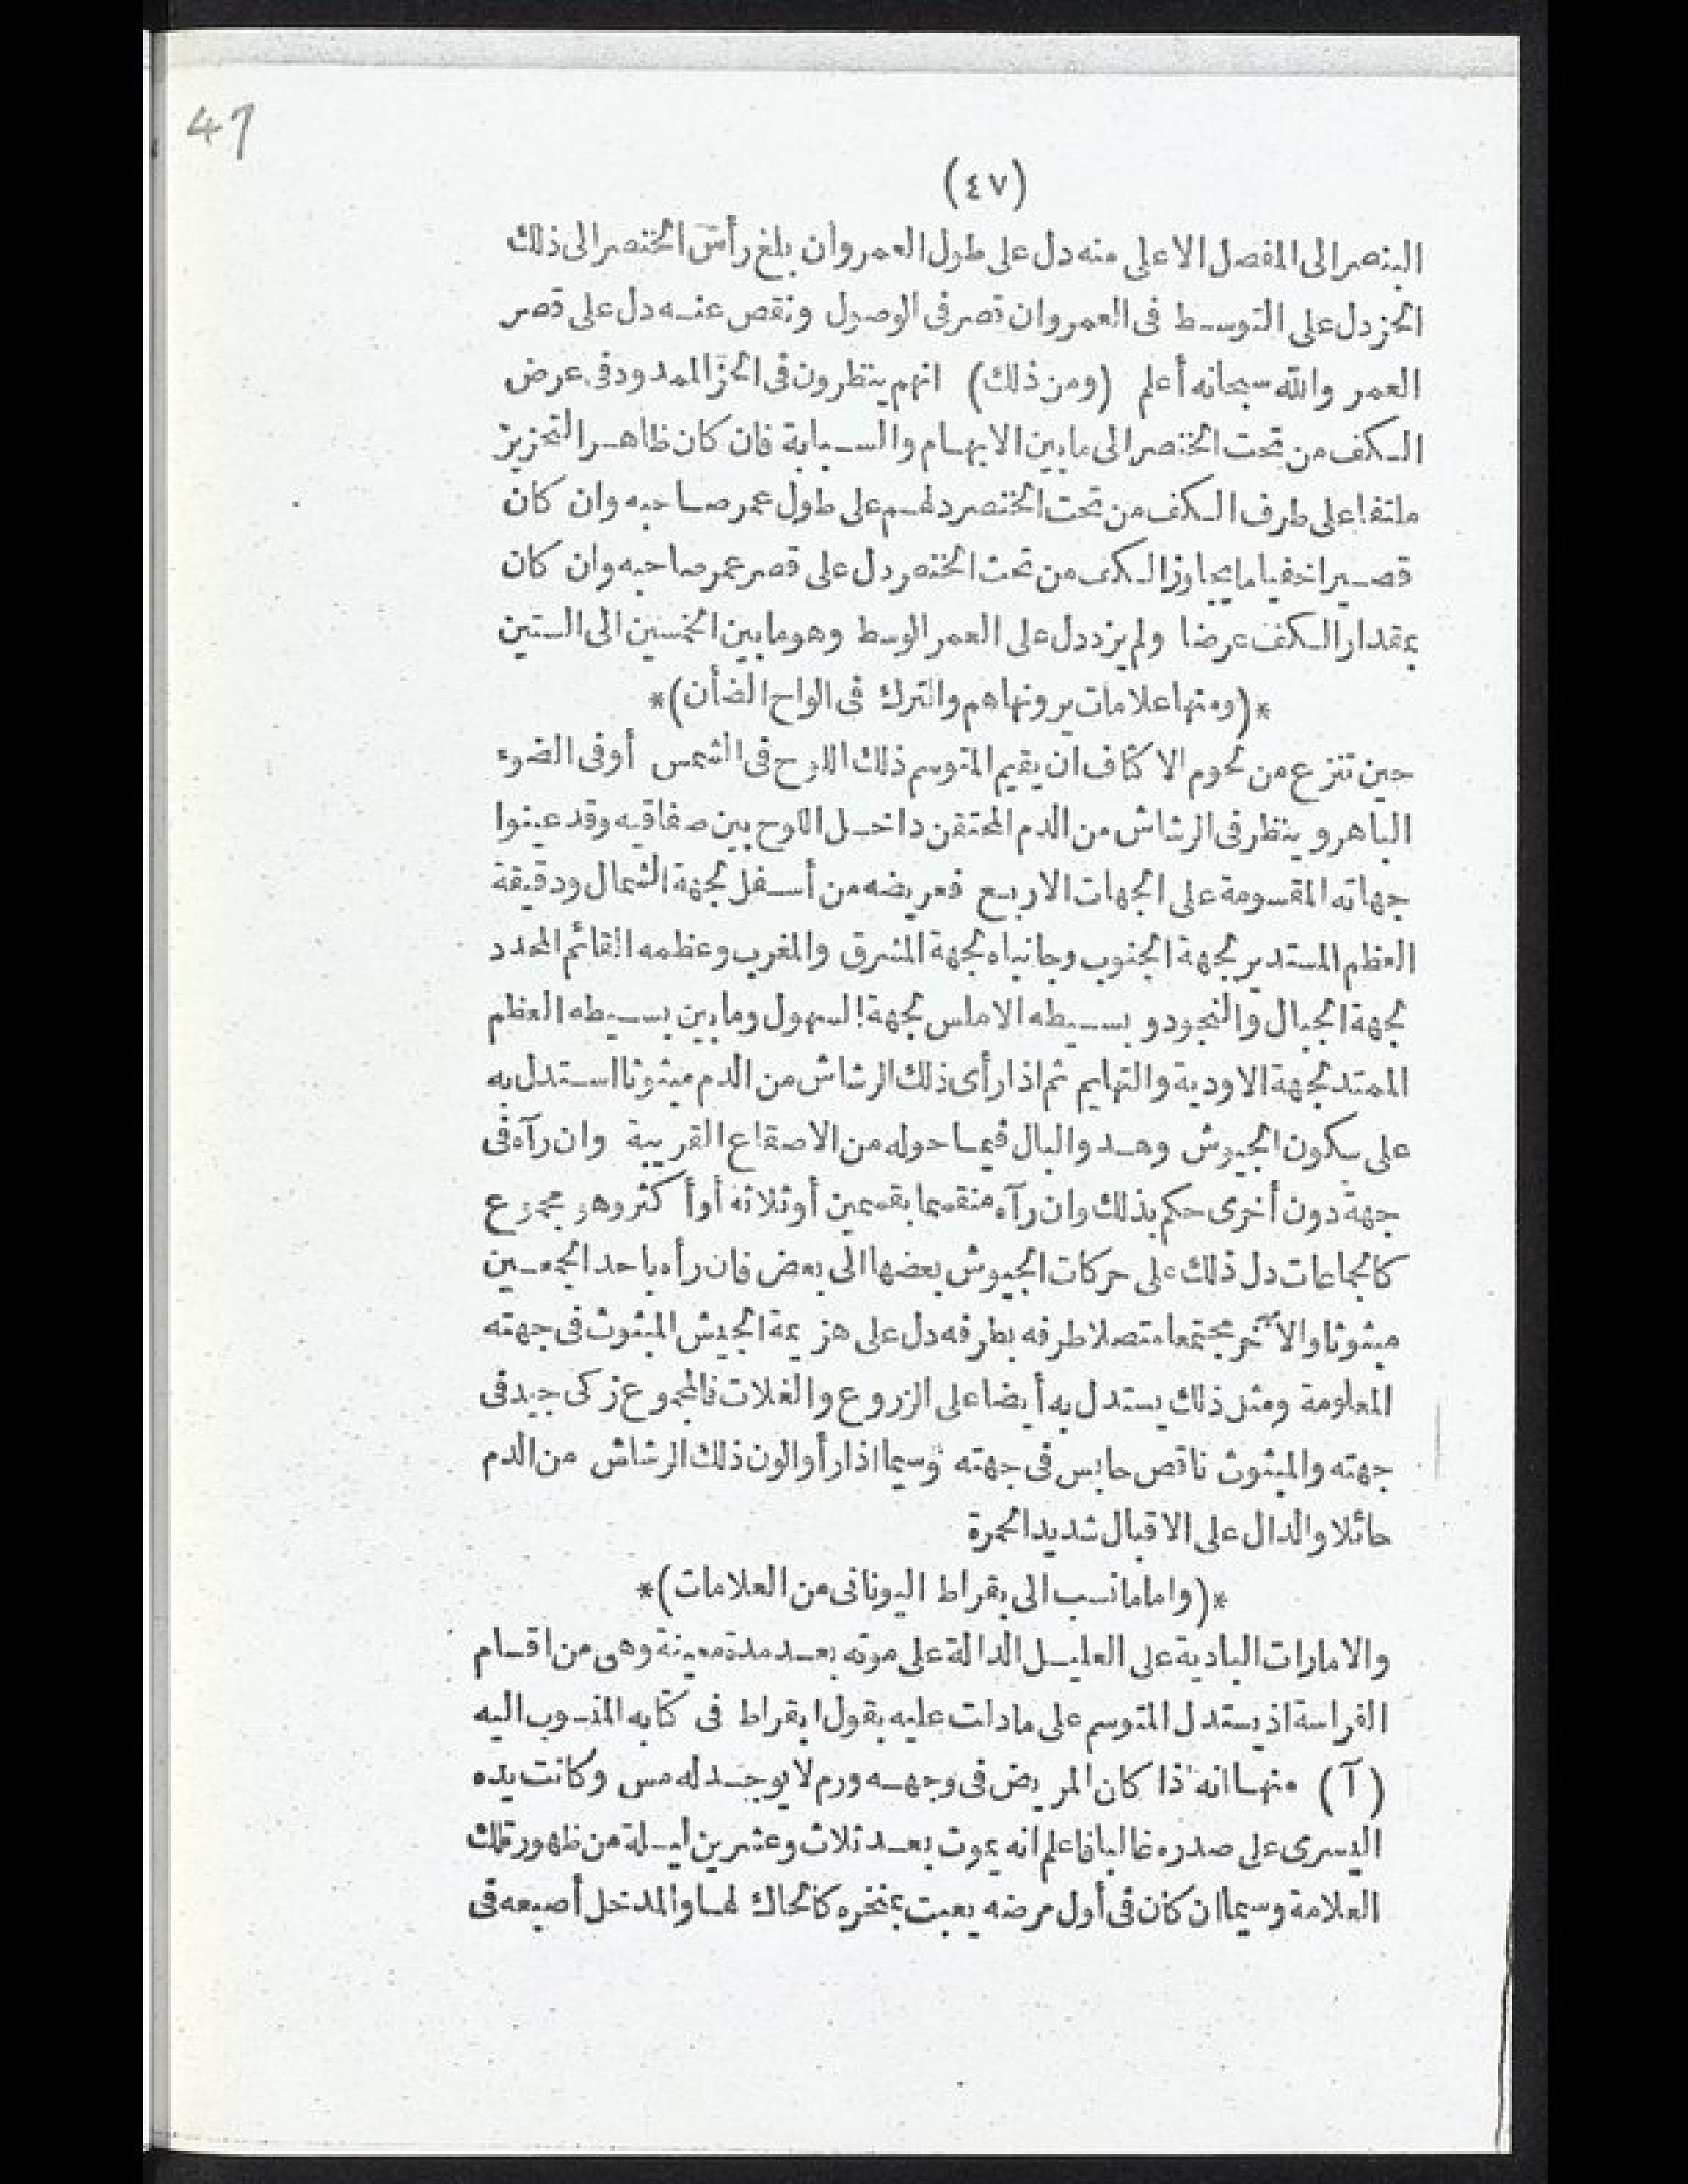 47
(٤٧)
البنصر الى المفصل الاعلى منه دل على طول العمر وان بلغ رأس الخنصر الى ذلك
الحز دل على التوسط فى العمر وان قصر فى الوصول ونقص عنه دل على قصر
العمر والله سبحانه أعلم (ومن ذلك) انهم ينظرون فى الحز الممدود فى عرض
الكف من تحت الخنصر الى ما بين الابهام والسبابة فان كان ظاهر التحزيز
ملتفا على طرف الكف من تحت الخنصر دلهم على طول عمر صاحبه وان كان
قصيرا خفيا ما يجاوز الكف من تحت الخنصر دل على قصر عمر صاحبه وان كان
بمقدار الكف عرضا ولم يزد دل على العمر الوسط وهو ما بين الخمسين الى الستين
*(ومنها علامات يرونها هم والترك فى الواح الضأن)*
حين تنزع من لحوم الاكتاف ان يقيم المتوسم ذلك اللوح فى الشمس أو فى الضوء
الباهر و ينظر فى الرشاش من الدم المحتقن داخل اللوح بين صفاقيه وقد عينوا
جهاته المقسومة على الجهات الاربع فعريضه من أسفل لجهة الشمال ودقيقة
العظم المستدير لجهة الجنوب وجانباه لجهة المشرق والمغرب وعظمه القائم المحدد
لجهة الجبال والنجود و بسيطه الاملس لجهة السهول وما بين بسيطه العظم
الممتد لجهة الاودية والتهايم ثم اذا رأى ذلك الرشاش من الدم مبثوثا استدل به
على سكون الجيوش وهدو البال فيما حوله من الاصقاع القريبة وان رآه فى
جهة دون أخرى حكم بذلك وان رآه منقمعا بقمعين أو ثلاثة أو أكثر وهو مجموع
كالجماعات دل ذلك على حركات الجيوش بعضها الى بعض فان رأه باحد الجمعين
مبثوثا والآخر مجتمعا متصلا طرفه بطرفه دل على هزيمة الجيش المبثوث فى جهته
المعلومة ومثل ذلك يستدل به أيضا على الزروع والغلات فالمجموع زكى جيد فى
جهته والمبثوث ناقص حابس فى جهته وسيما اذا رأوا لون ذلك الرشاش من الدم
حائلا والدال على الاقبال شديد الحمرة
*(واما ما نسب الى بقراط اليونانى من العلامات)*
والامارات البادية على العليل الدالة على موته بعد مدة معينة وهى من اقسام
الفراسة اذ يستدل المتوسم على ما دلت عليه بقول ابقراط فى كتابه المنسوب اليه
(آ) منها انه اذا كان المريض فى وجهه ورم لا يوجد له مس وكانت يده
اليسرى على صدره غالبا فاعلم انه يموت بعد ثلاث وعشرين ليلة من ظهور تلك
العلامة وسيما ان كان فى أول مرضه يعبث بمنخره كالحاك لها والمدخل أصبعه فى